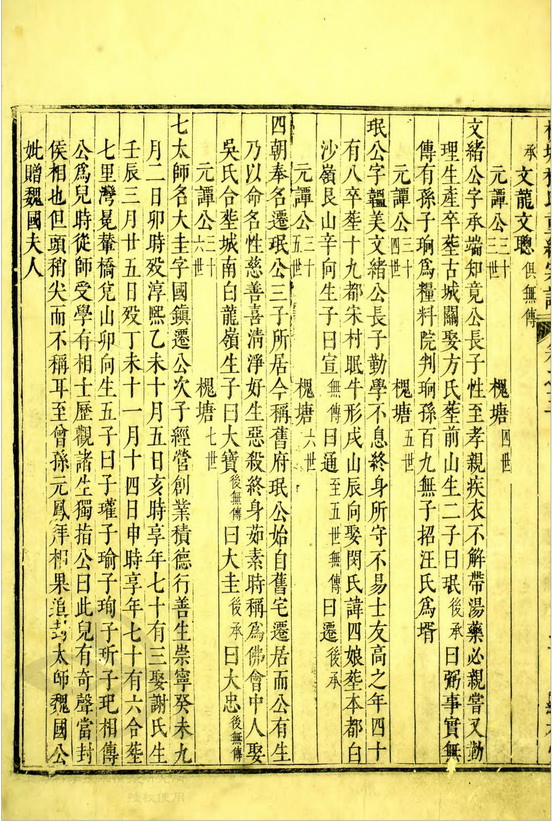 承 文龍文聰 俱無傳
元譚公三十三世 槐塘四世
文緒公字承端知竟公長子性至孝親疾衣不解帶湯藥必親嘗又勤
理生產卒塟古城關娶方氏塟前山生二子曰珉後承曰弼事實無
傳有孫子珦爲糧料院判珦孫百九無子招汪氏爲壻
元譚公三十四世 槐塘五世
珉公字韞美文緒公長子勤學不息終身所守不易士友高之年四十
有八卒塟十九都朱村眠牛形戌山辰向娶閔氏諱四娘塟本都白
沙嶺艮山辛向生子曰宣無傳曰通至五世無傳曰遷後承
元譚公三十五世 槐塘六世
四朝奉名遷珉公三子所居今稱舊府珉公始自舊宅遷居而公有生
乃以命名性慈善喜清淨好生惡殺終身茹素時稱爲佛會中人娶
吳氏合塟城南白龍嶺生子曰大寶後無傳曰大圭後承曰大忠後無傳
元譚公三十六世 槐塘七世
七太師名大圭字國鎮遷公次子經營創業積德行善生崇寧癸未九
月二日卯時殁淳熙乙未十月五日亥時享年七十有三娶謝氏生
壬辰三月廿五日殁丁未十一月十四日申時享年七十有六合塟
七里灣晃輋橋兊山卯向生五子曰子瓘子瑜子珣子玠子玘相傳
公爲兒時從師受學有相士歷觀諸生獨指公曰此兒有奇聲當封
侯相也但頭稍尖而不稱耳至曾孫元鳳拜相果追封太師魏國公
妣贈魏國夫人